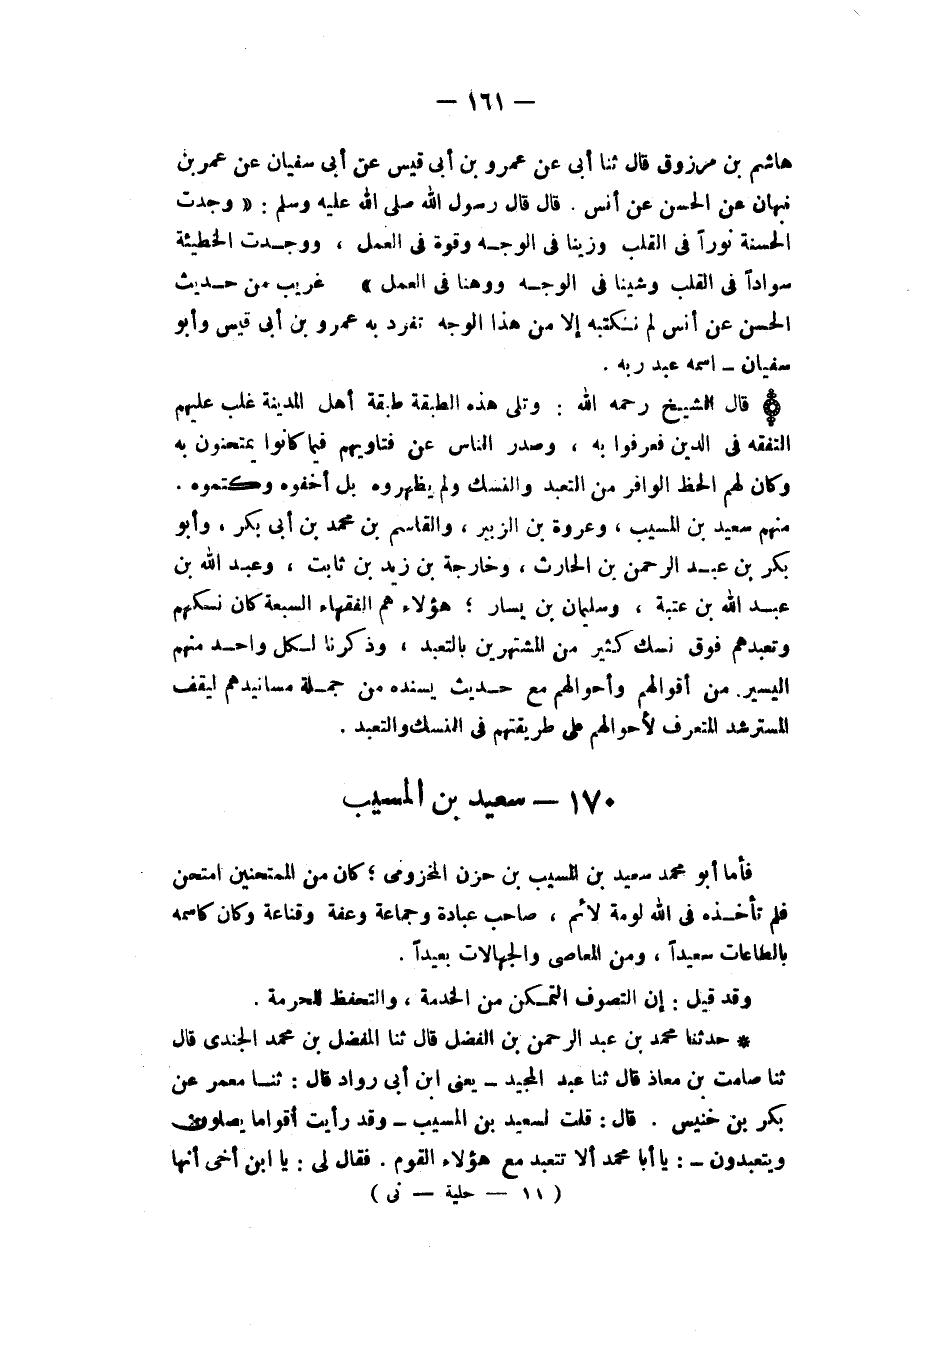 — ١٦١ —
هاشم بن مرزوق قال ثنا أبى عن عمرو بن أبى قيس عن أبى سفيان عن عمر بن
نبهان عن الحسن عن أنس . قال قال رسول الله صلى الله عليه وسلم : « وجدت
الحسنة نوراً فى القلب وزينا فى الوجه وقوة فى العمل ، ووجدت الخطيئة
سواداً فى القلب وشينا فى الوجه ووهنا فى العمل » غريب من حديث
الحسن عن أنس لم نكتبه إلا من هذا الوجه تفرد به عمرو بن أبى قيس وأبو
سفيان ـ اسمه عبد ربه .
۞ قال الشيخ رحمه الله : وتلى هذه الطبقة طبقة أهل المدينة غلب عليهم
التفقه فى الدين فعرفوا به ، وصدر الناس عن فتاويهم فيما كانوا يمتحنون به
وكان لهم الحظ الوافر من التعبد والنسك ولم يظهروه بل أخفوه وكتموه .
منهم سعيد بن المسيب ، وعروة بن الزبير ، والقاسم بن محمد بن أبى بكر ، وأبو
بكر بن عبد الرحمن بن الحارث ، وخارجة بن زيد بن ثابت ، وعبد الله بن
عبد الله بن عتبة ، وسليمان بن يسار ؛ هؤلاء هم الفقهاء السبعة كان نسكهم
وتعبدهم فوق نسك كثير من المشتهرين بالتعبد ، وذكرنا لكل واحد منهم
اليسير من أقوالهم وأحوالهم مع حديث يسنده من جملة مسانيدهم ليقف
المسترشد المتعرف لأحوالهم على طريقتهم فى النسك والتعبد .
١٧٠ — سعيد بن المسيب
فأما أبو محمد سعيد بن المسيب بن حزن المخزومى ؛ كان من الممتحنين امتحن
فلم تأخذه فى الله لومة لائم ، صاحب عبادة وجماعة وعفة وقناعة وكان كاسمه
بالطاعات سعيداً ، ومن المعاصى والجهالات بعيداً .
وقد قيل : إن التصوف التمكن من الخدمة ، والتحفظ للحرمة .
* حدثنا محمد بن عبد الرحمن بن الفضل قال ثنا المفضل بن محمد الجندى قال
ثنا صامت بن معاذ قال ثنا عبد المجيد ـ يعنى ابن أبى رواد قال : ثنا معمر عن
بكر بن خنيس . قال : قلت لسعيد بن المسيب ـ وقد رأيت أقواما يصلون
ويتعبدون ـ : يا أبا محمد ألا تتعبد مع هؤلاء القوم . فقال لى : يا ابن أخى أنها
( ١١ — حلية — نى )